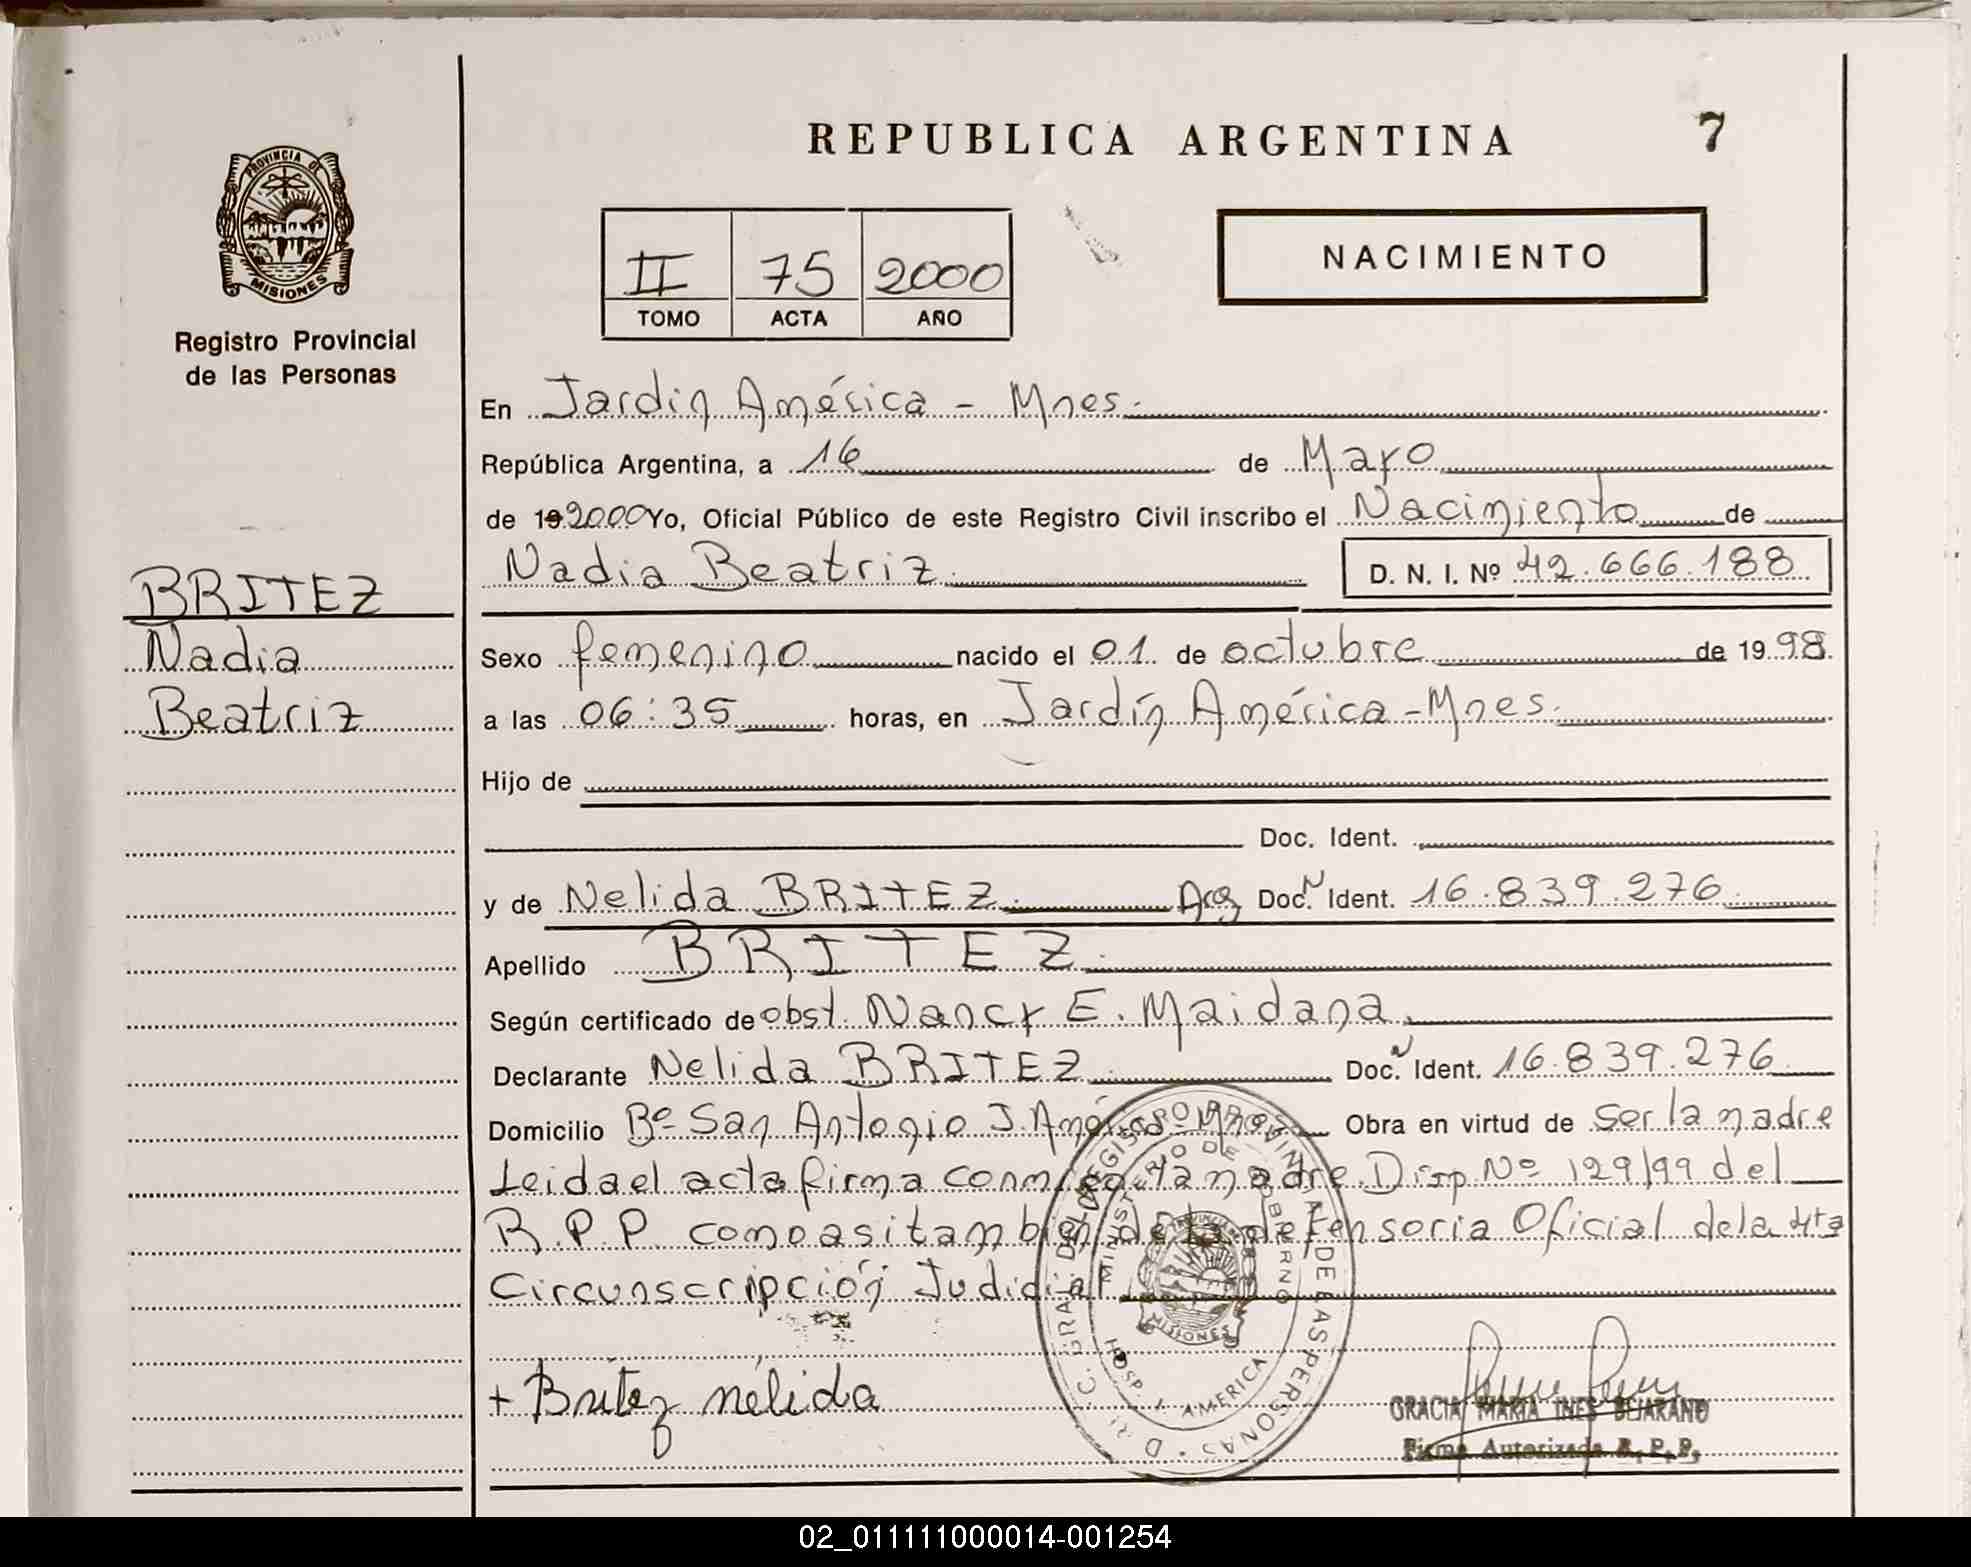 REPUBLICA ARGENTINA 7
PROVINCIA DE
MISIONES
Registro Provincial
de las Personas
II 75 2000
TOMO ACTA AÑO
NACIMIENTO
En Jardín América - Mnes.
República Argentina, a 16 de Mayo
de 192000 Yo, Oficial Público de este Registro Civil inscribo el Nacimiento de
Nadia Beatriz D. N. I. Nº 42.666.188
BRITEZ
Nadia
Beatriz
Sexo femenino nacido el 01 de octubre de 1998
a las 06:35 horas, en Jardín América - Mnes.
Hijo de
Doc. Ident.
y de Nelida BRITEZ Arg Doc. N Ident. 16.839.276
Apellido BRITEZ
Según certificado de obst. Nancy E. Maidana
Declarante Nelida BRITEZ Doc. N Ident. 16.839.276
Domicilio Bº San Antonio J. América - Mnes Obra en virtud de ser la madre
Leida el acta firma conmigo la madre. Disp. Nº 129/99 del
R.P.P. como asi tambien de la defensoria Oficial de la 4ta
Circunscripción Judicial
+ Britez nélida
REGISTRO PROVINCIAL DE LAS PERSONAS
MINISTERIO DE GOBIERNO
HOSP. J. AMERICA
MISIONES
GRACIA MARIA INES BEJARANO
Firma Autorizada R. P. P.
02_011111000014-001254